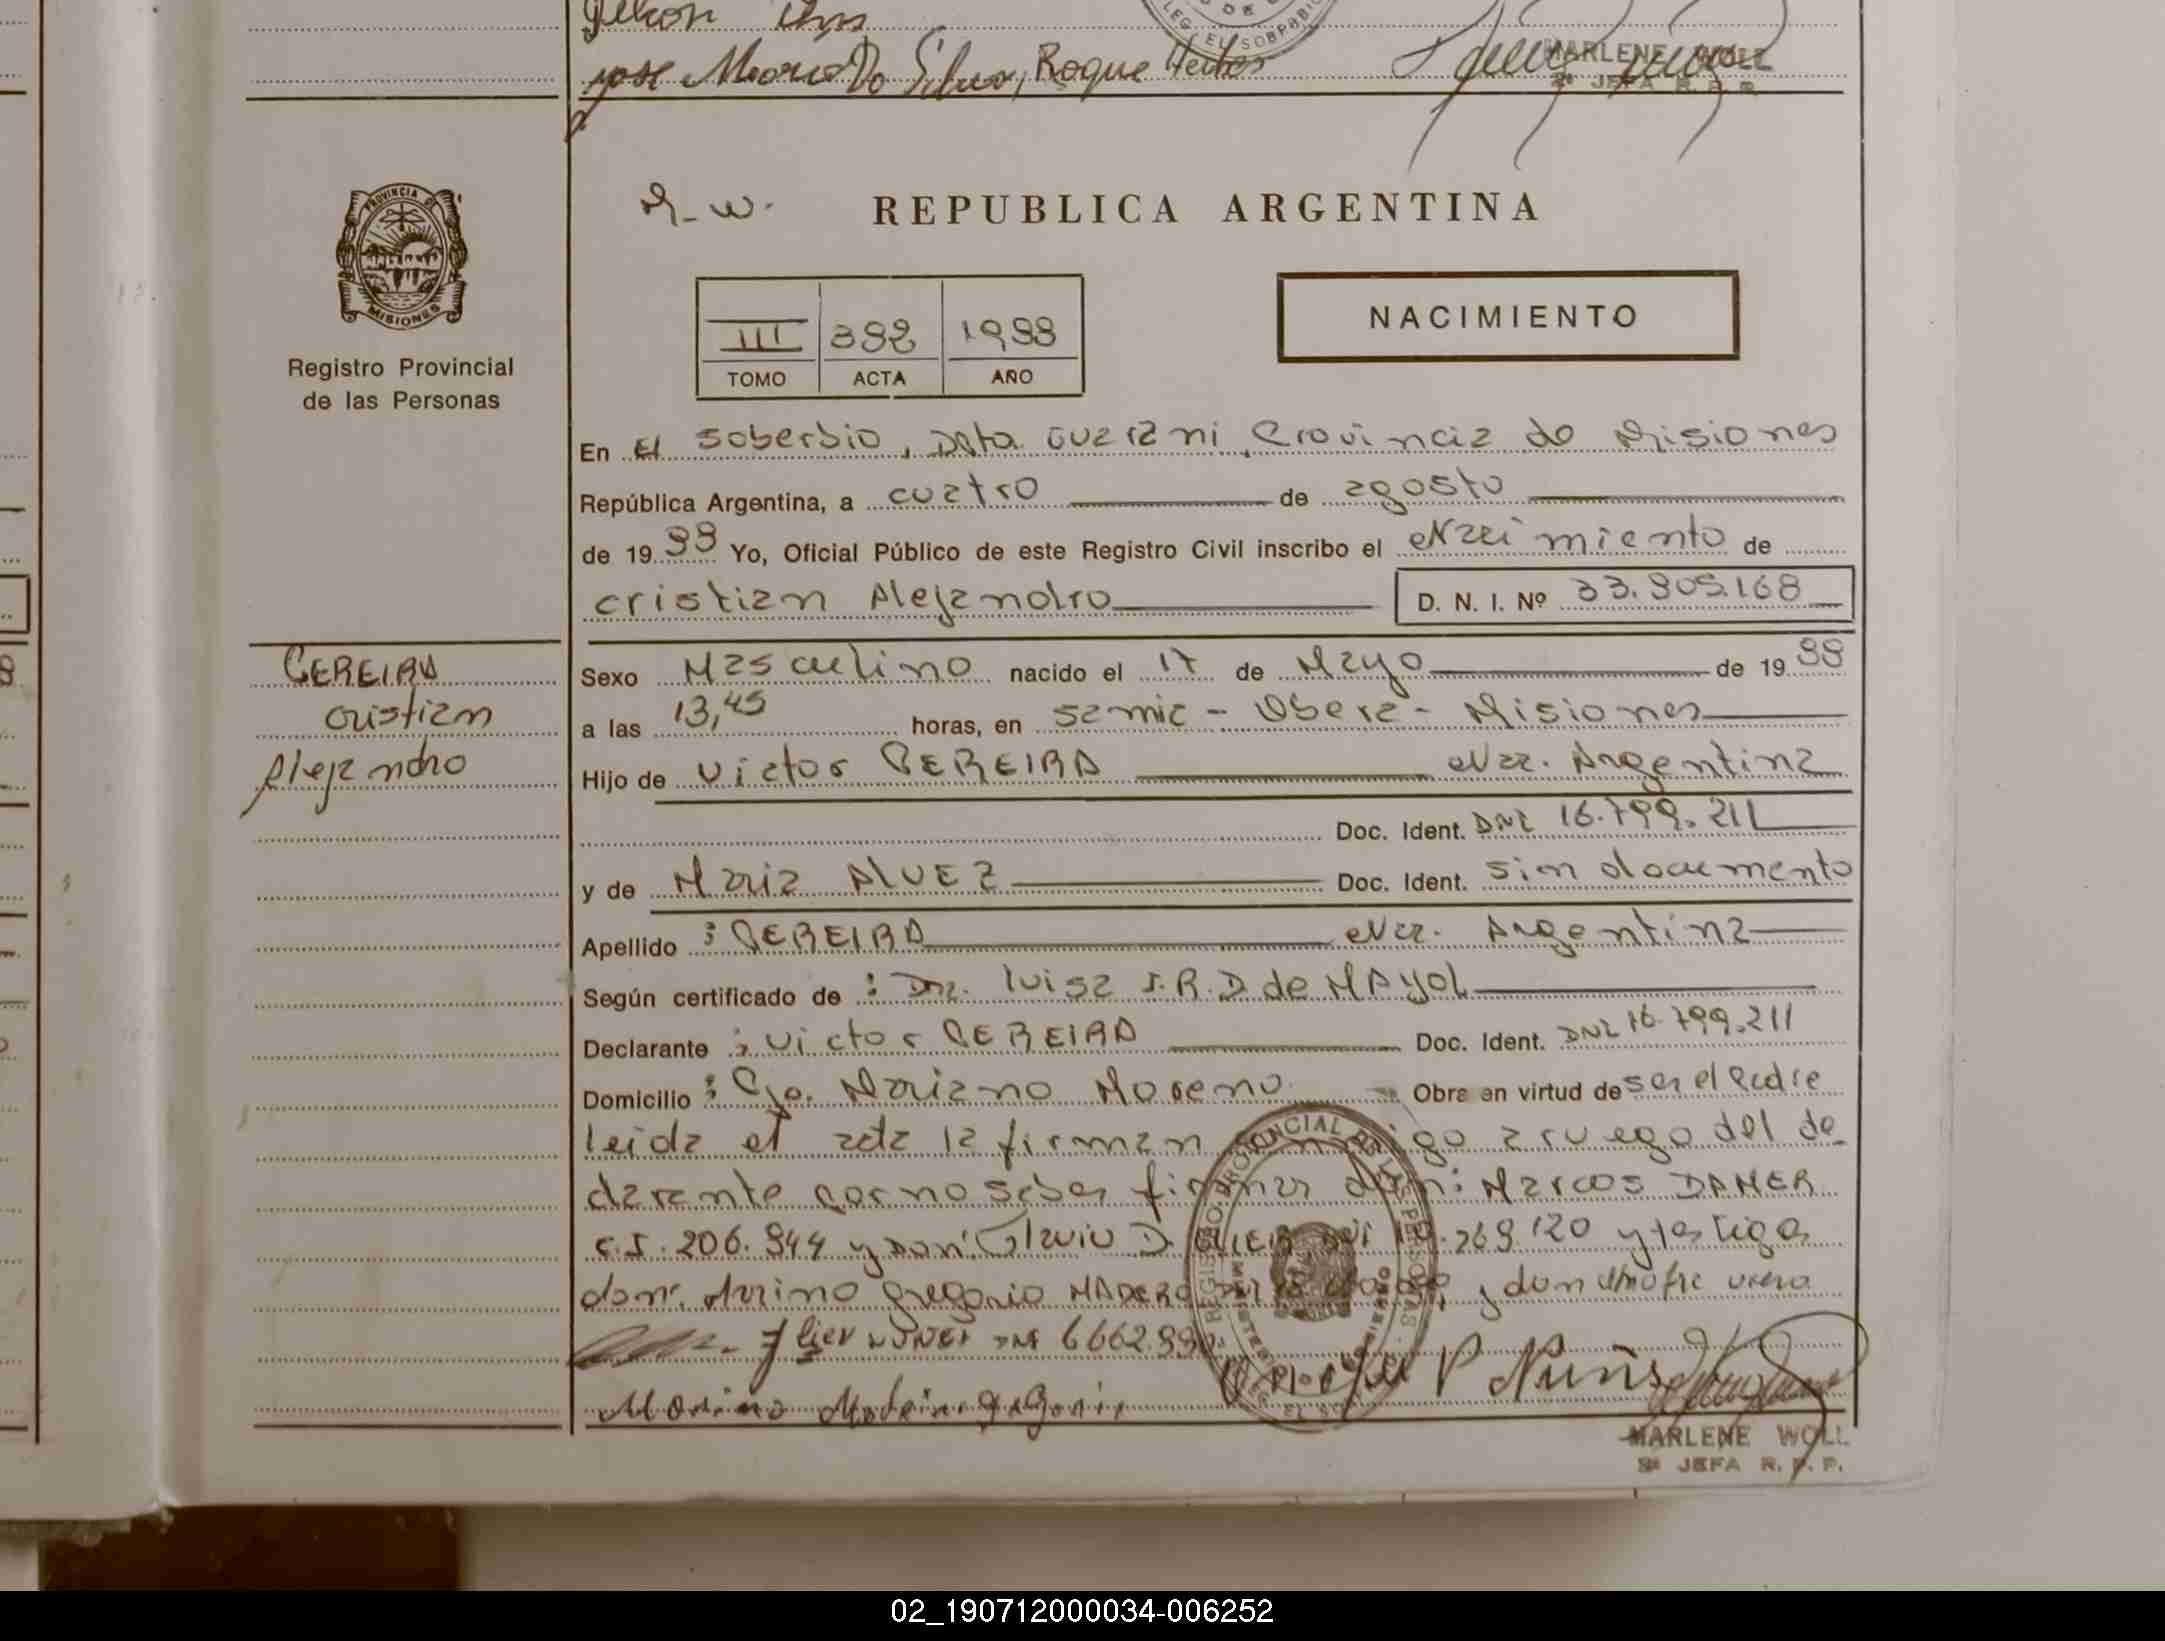 jose Mario Do Silva, Roque
MARLENE WOLL
2ª JEFA R. P. P.
PROVINCIA DE
MISIONES
Registro Provincial
de las Personas
M-W.
REPUBLICA ARGENTINA
III 392 1988
TOMO ACTA AÑO
NACIMIENTO
En El Soberbio, Dpto. Guarani, Provincia de Misiones
República Argentina, a cuatro de agosto
de 1988 Yo, Oficial Público de este Registro Civil inscribo el Nacimiento de
Cristian Alejandro D. N. I. Nº 33.905.168
PEREIRA
Cristian
Alejandro
Sexo Masculino nacido el 17 de Mayo de 1988
a las 13,45 horas, en Samic - Obera - Misiones
Hijo de Victor PEREIRA Nac. Argentina
Doc. Ident. DNI 16.799.211
y de Maria ALVEZ Doc. Ident. sin documento
Apellido : PEREIRA Nac. Argentina
Según certificado de : Dra. Luisa S.R.D de MAYOL
Declarante : Victor PEREIRA Doc. Ident. DNI 16.799.211
Domicilio : Pje. Mariano Moreno Obra en virtud de ser el Padre
leida el acta la firman conmigo a ruego del de-
clarante por no saber firmar don: Marcos DAMER
C.I. 206.944 y Don: y testigos
don: Marino Gregorio MADERO y don
NUÑEZ DNI
Nuñes
Marino
MARLENE WOLL
2ª JEFA R. P. P.
02_190712000034-006252